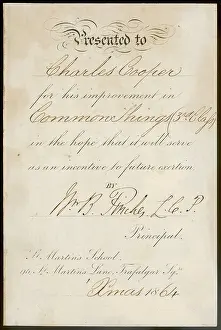 Presented to
Charles Cooper
for his improvement in
Common Things 3rd Class
in the hope that it will serve
as an incentive to future exertion
BY
Wm. B. L.C.P.
Principal.
St. Martin's School,
St. Martin's Lane, Trafalgar Sqr.
Xmas 1864